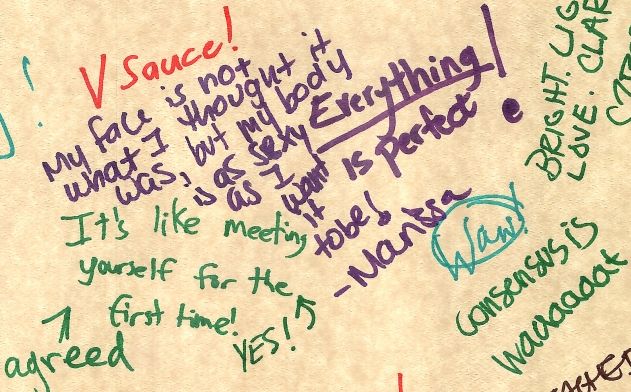 V Sauce!
My face is not
what I thought it
was, but my body
is as sexy
as I want
it
to be!
-Marissa
Everything
is perfect!
It's like meeting
yourself for the
first time!
YES!
agreed
Wow!
consensus is
waaaaaat
BRIGHT. LIG
LOVE. CLAR